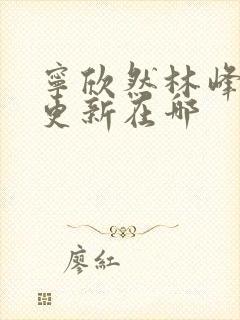 寧欣然林峰
更新在哪
廖紅